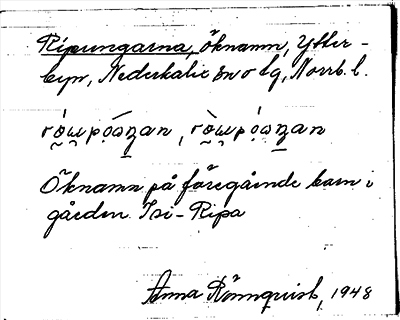 Ripungarna, öknamn, Ytter-
byn, Nederkalix sn o tg, Norrb. l.
Öknamn på föregående barn i
gården. Isi-Ripa
Anna Rönnqvist, 1948